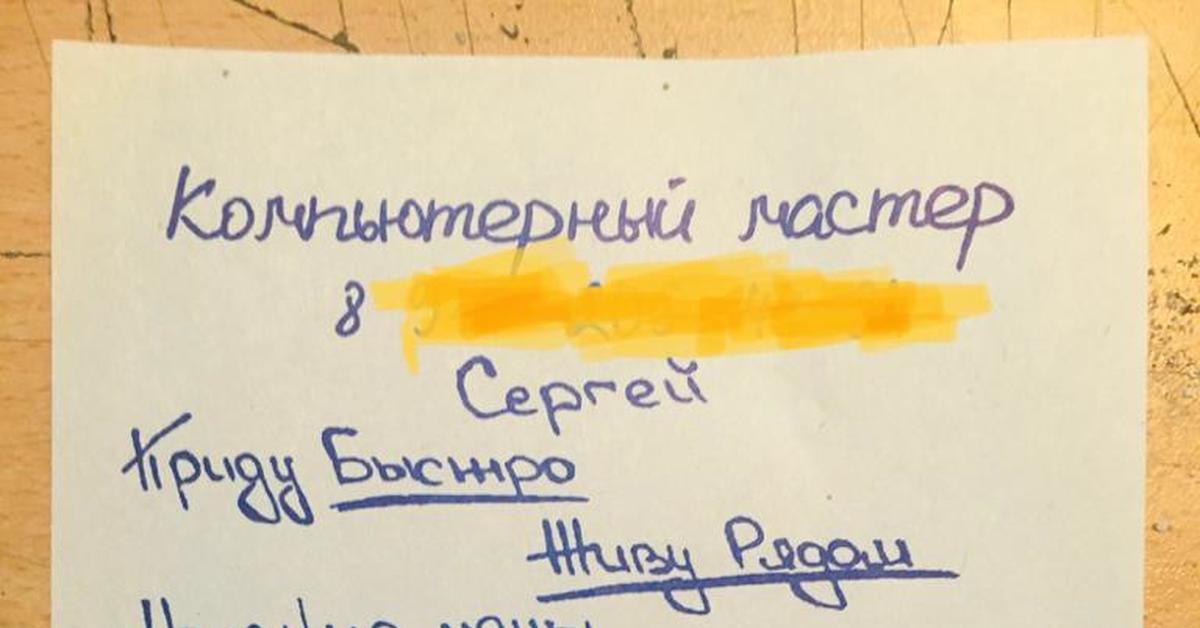 Компьютерный мастер
8
Сергей
Приду Быстро
Живу Рядом